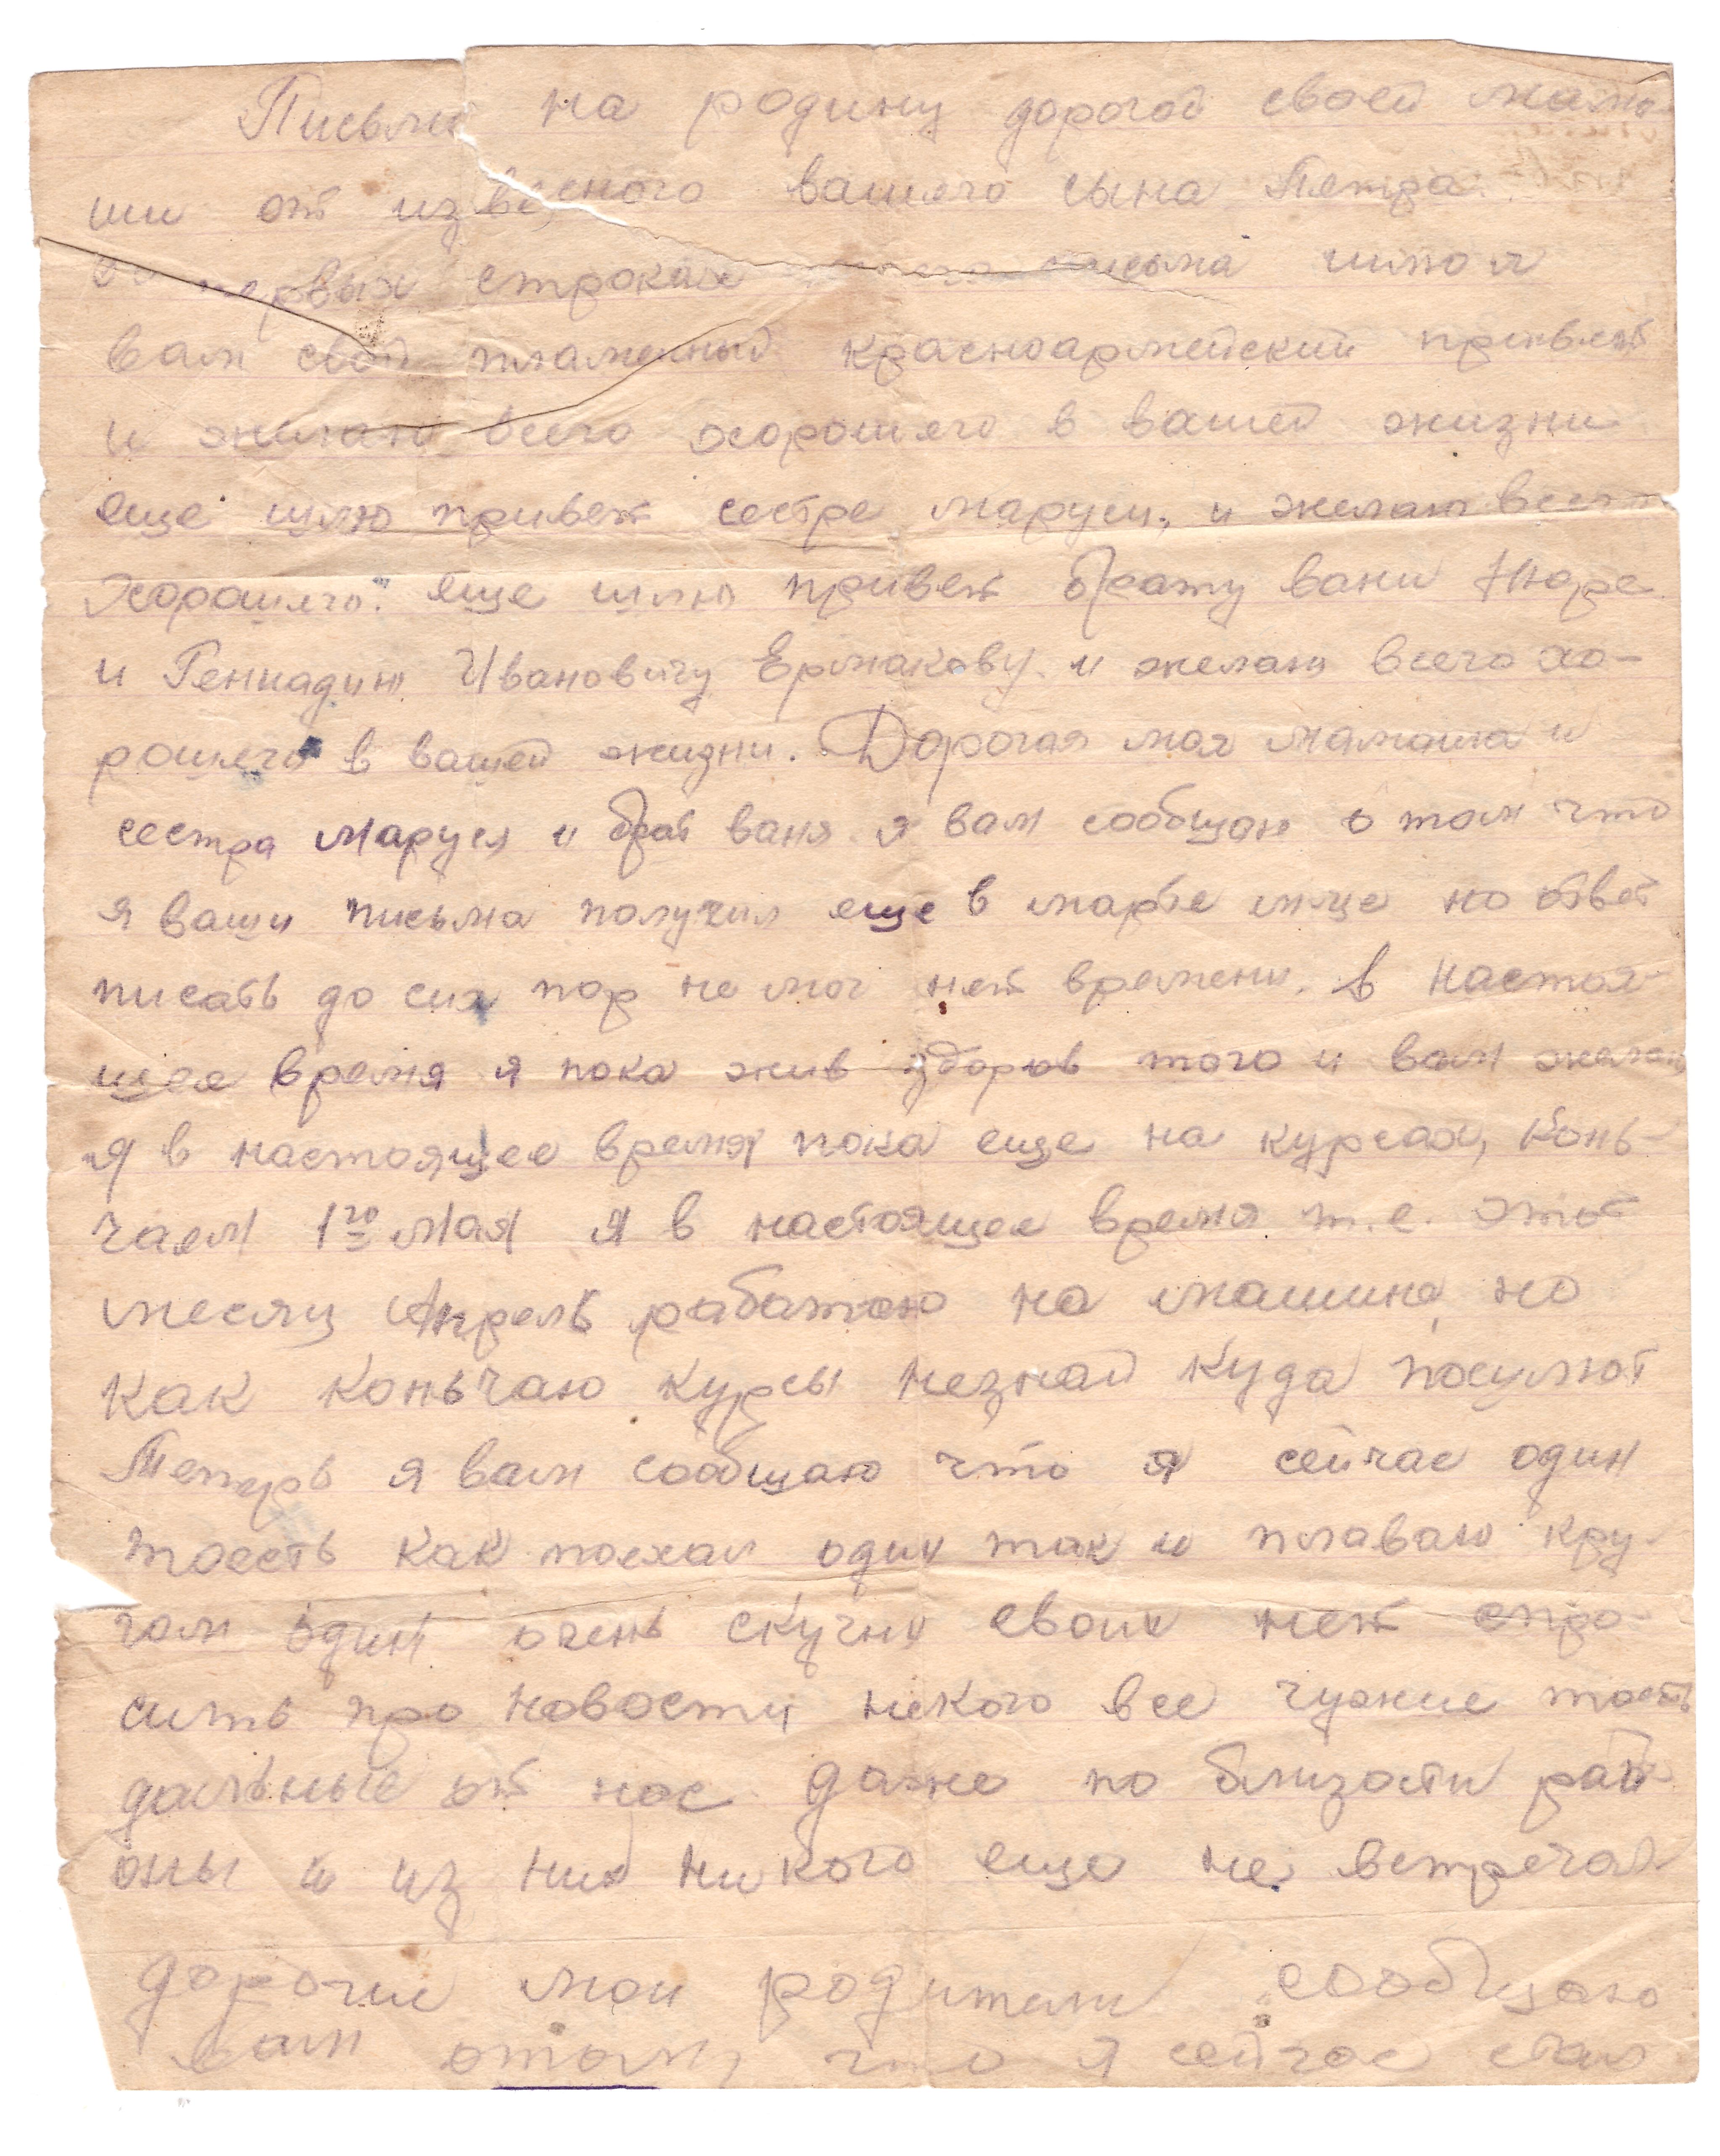 Письмо на родину дорогой своей мама-
ши от известного вашего сына Петра.
первых строках письма шлю я
вам свой пламенный красноармейский привет
и желаю всего хорошего в вашей жизни
еще шлю привет сестре маруси, и желаю всего
хорошего. еще шлю привет брату вани Нюре
и Геннадию Ивановичу Ермакову. и желаю всего хо-
рошего в вашей жизни. Дорогая моя мамаша и
сестра Маруся и брат ваня я вам сообщаю о том что
я ваши письма получил еще в марте м-це но ответ
писать до сих пор не мог нет времени. в настоя-
щее время я пока жив здоров того и вам желаю
я в настоящее время пока еще на курсах, конь-
чаем 1го мая я в настоящее время т.е. этот
месяц Апрель работаю на машине но
как коньчаю курсы незнай куда посулют
Теперь я вам сообщаю что я сейчас один
тоесть как поехал один так и плаваю кру-
гом один очень скучну своих нет спро-
сить про новости некого все чужие тоесть
дальные от нас даже по близости рай-
оны и из них никого еще не встречал
дорогие мои родители сообщаю
вам отом, что я сейчас стал